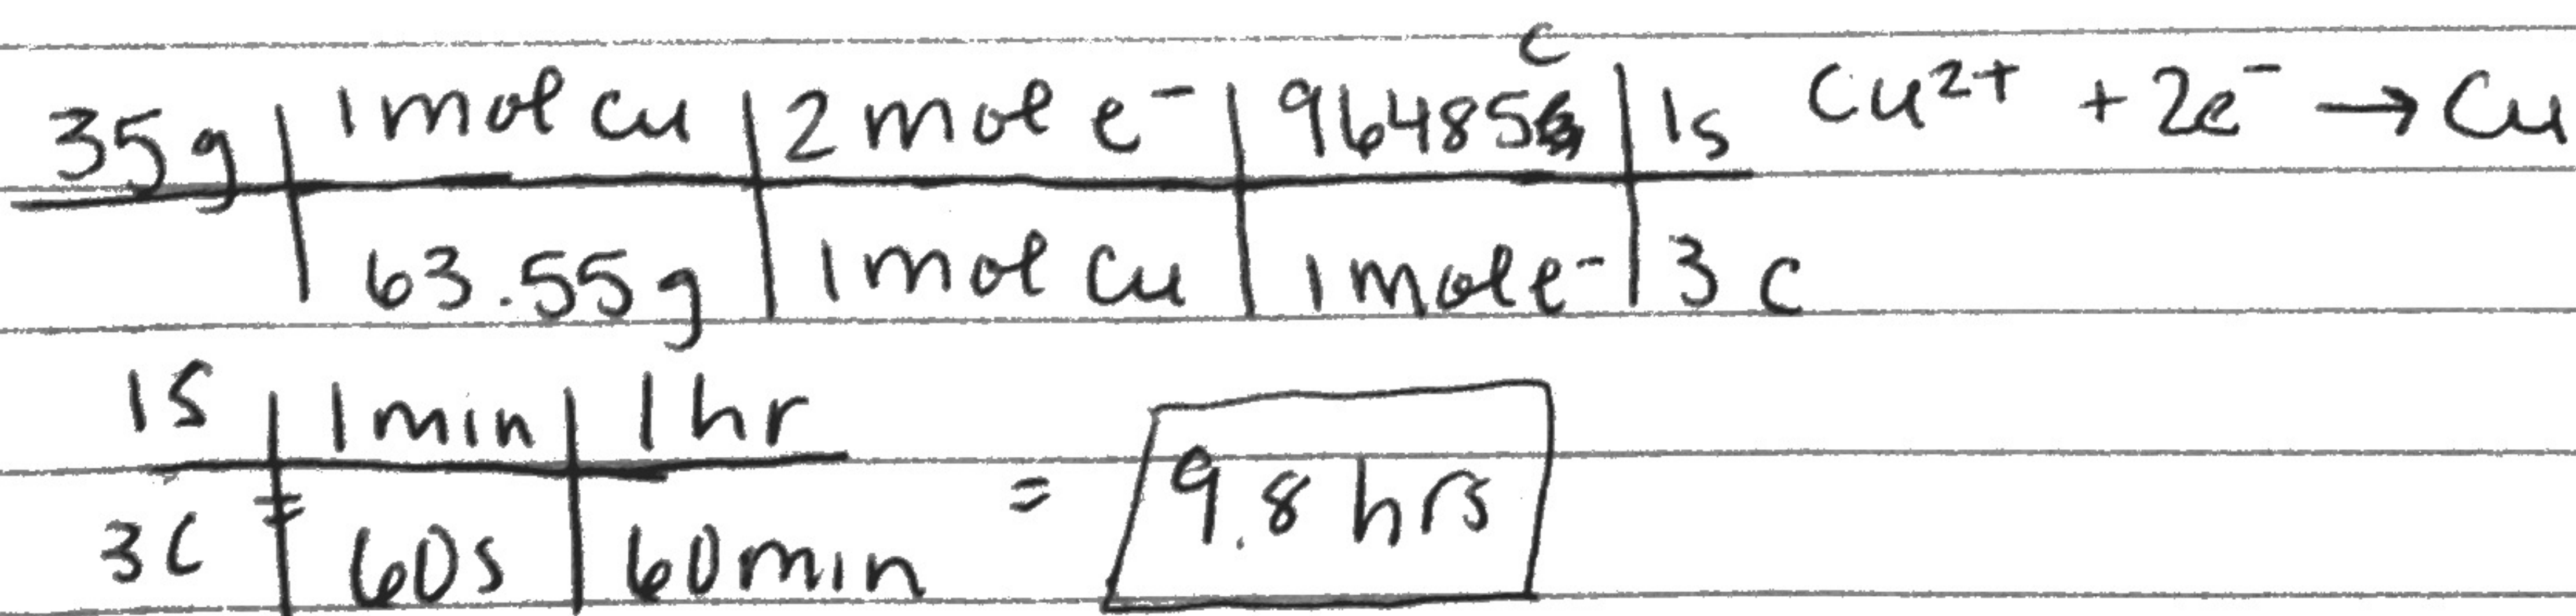 35g | 1 mol Cu | 2 mol e⁻ | 96485 C | 1s Cu²⁺ + 2e⁻ → Cu
63.55g | 1 mol Cu | 1 mol e⁻ | 3 C
1s | 1 min | 1 hr
3C | 60s | 60 min = 9.8 hrs